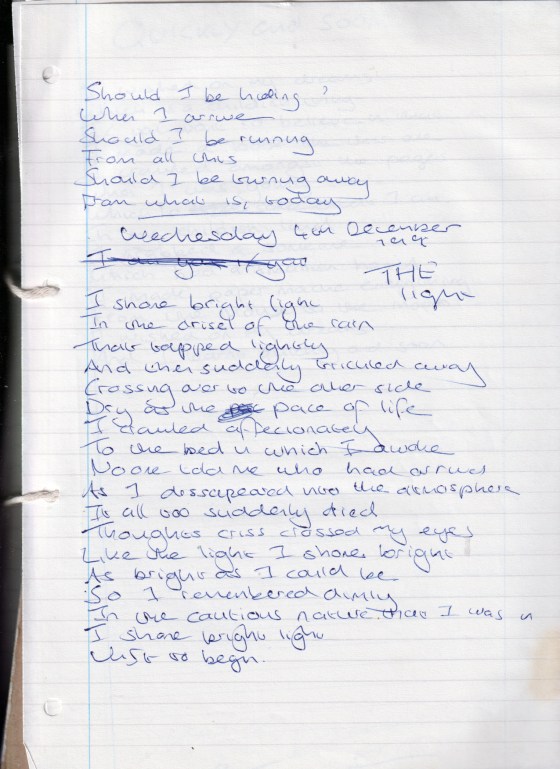 Should I be hiding?
When I arrive
Should I be running
From all this
Should I be turning away
From what is, today
Wednesday 4th December
THE
light
I shone bright light
In the drisel of the rain
That tapped lightly
And then suddenly trickled away
Crossing over to the other side
Dry as the pace of life
I crawled affectionately
To the bed in which I awoke
No one told me who had arrived
As I dissapeared into the atmosphere
It all too suddenly died
Thoughts criss crossed my eyes
Like the light I shone bright
As bright as I could be
So I remembered dimly
In the cautious nature that I was in
I shone bright light
Just to begin.